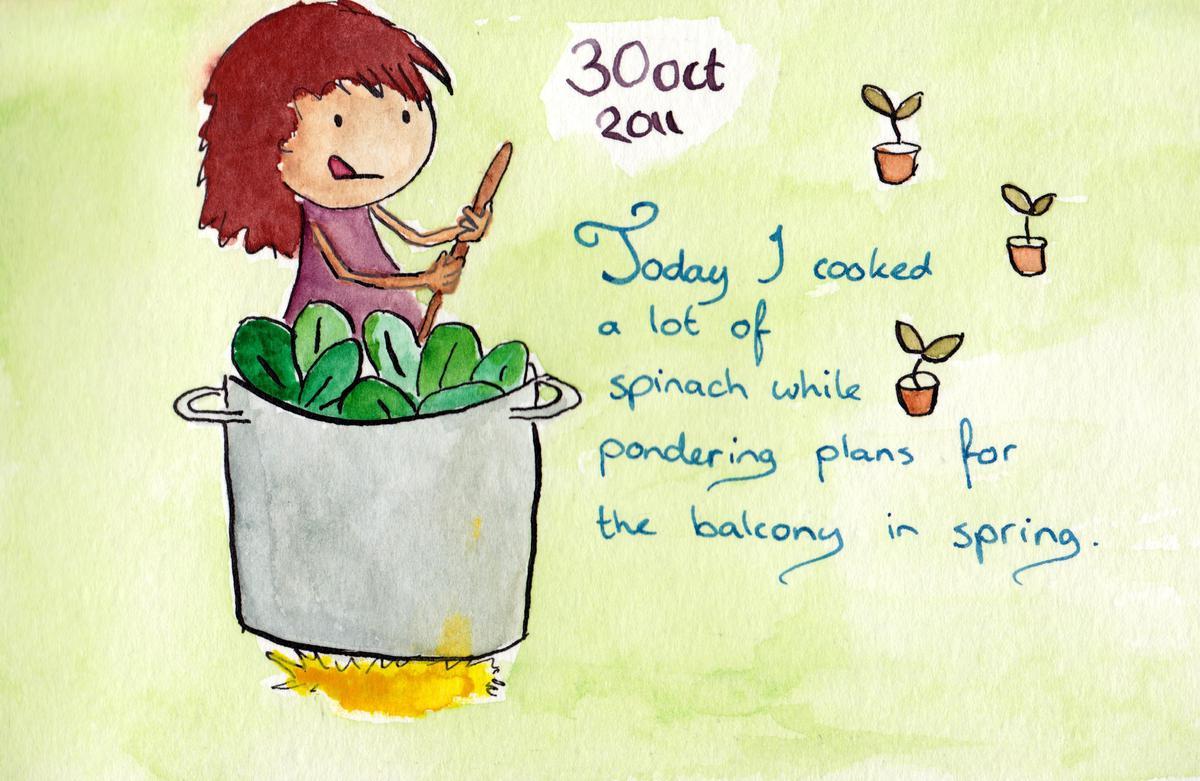 30 oct
2011
Today I cooked
a lot of
spinach while
pondering plans for
the balcony in spring.